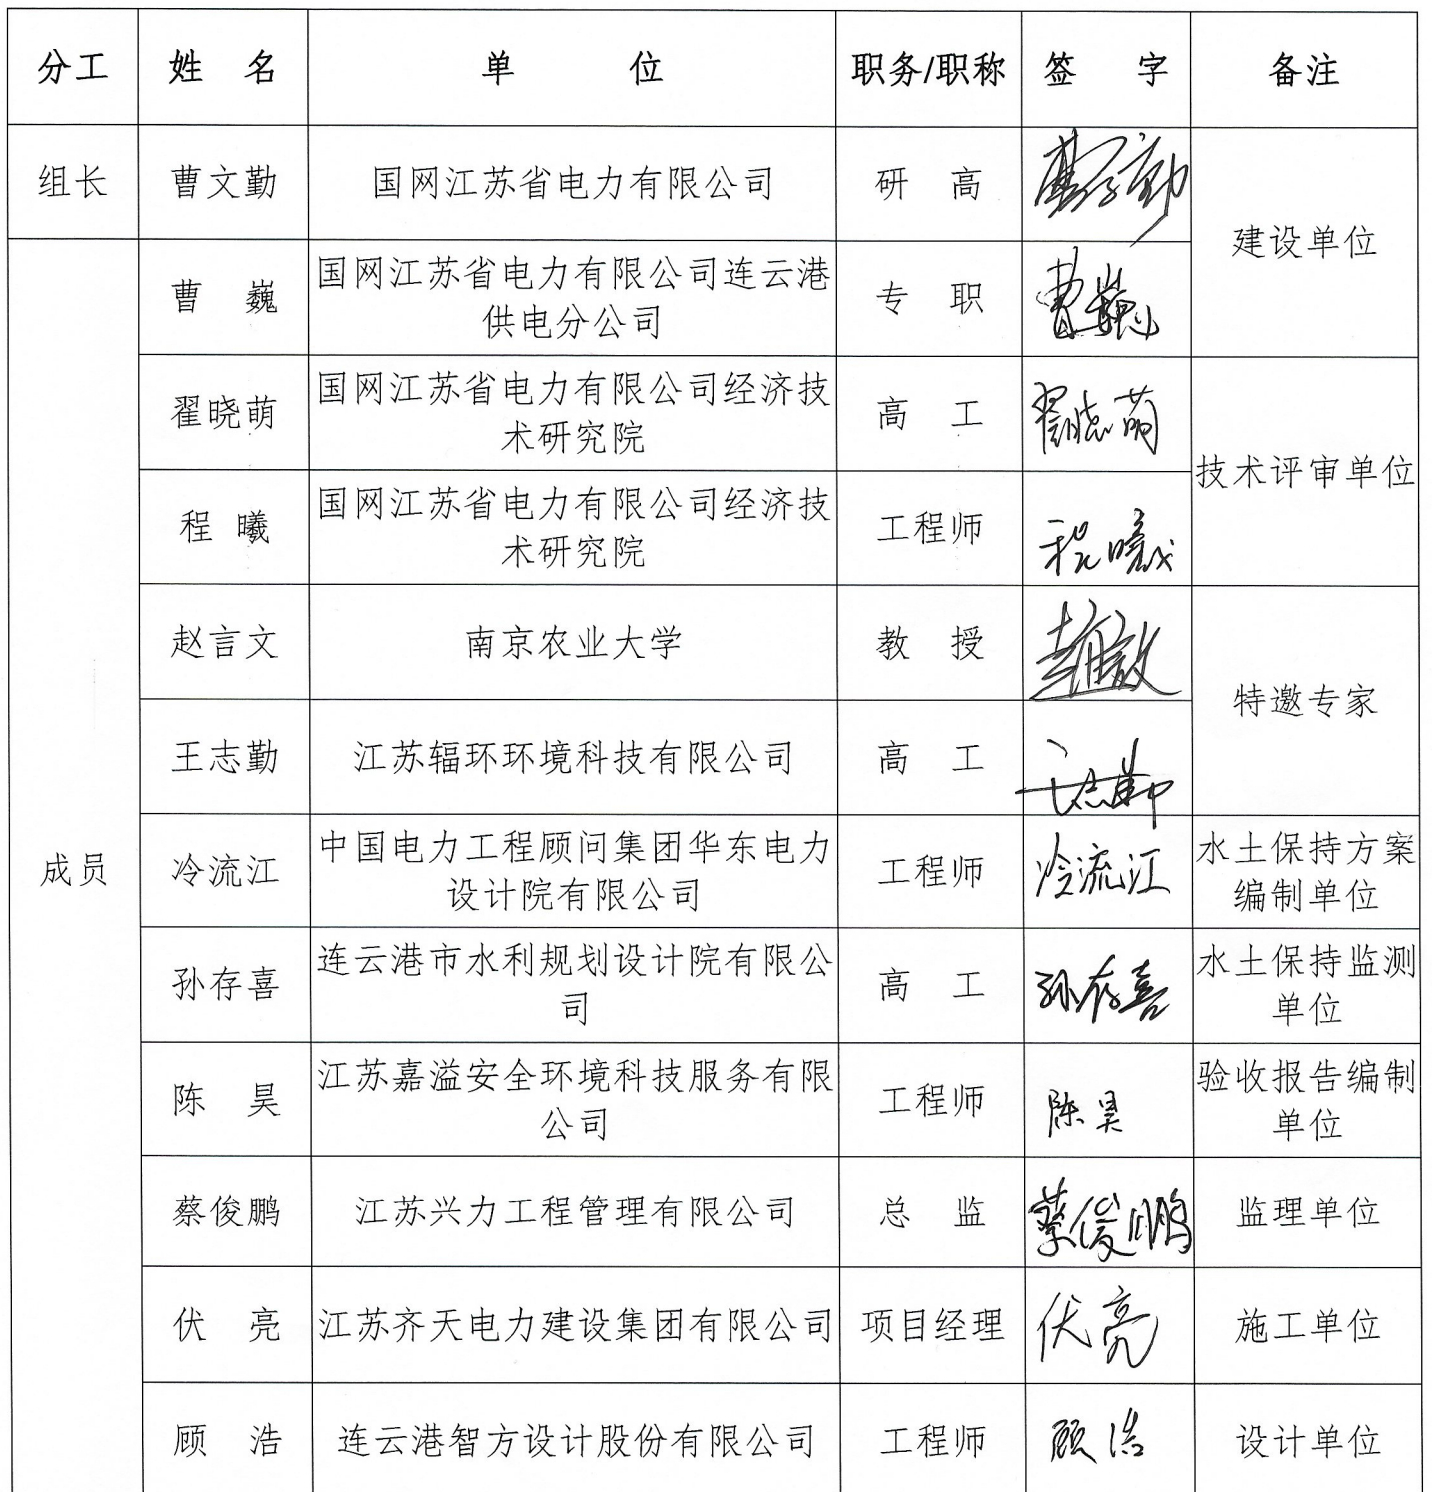 分工 姓 名 单 位 职务/职称 签 字 备注
组长 曹文勤 国网江苏省电力有限公司 研 高 曹文勤
建设单位
曹 巍 国网江苏省电力有限公司连云港
供电分公司 专 职 曹巍
翟晓萌 国网江苏省电力有限公司经济技
术研究院 高 工 翟晓萌
技术评审单位
程 曦 国网江苏省电力有限公司经济技
术研究院 工程师 程曦
赵言文 南京农业大学 教 授 赵言文
特邀专家
王志勤 江苏辐环环境科技有限公司 高 工 王志勤
成员
冷流江 中国电力工程顾问集团华东电力
设计院有限公司 工程师 冷流江 水土保持方案
编制单位
孙存喜 连云港市水利规划设计院有限公
司 高 工 孙存喜 水土保持监测
单位
陈 昊 江苏嘉溢安全环境科技服务有限
公司 工程师 陈昊 验收报告编制
单位
蔡俊鹏 江苏兴力工程管理有限公司 总 监 蔡俊鹏 监理单位
伏 亮 江苏齐天电力建设集团有限公司 项目经理 伏亮 施工单位
顾 浩 连云港智方设计股份有限公司 工程师 顾浩 设计单位